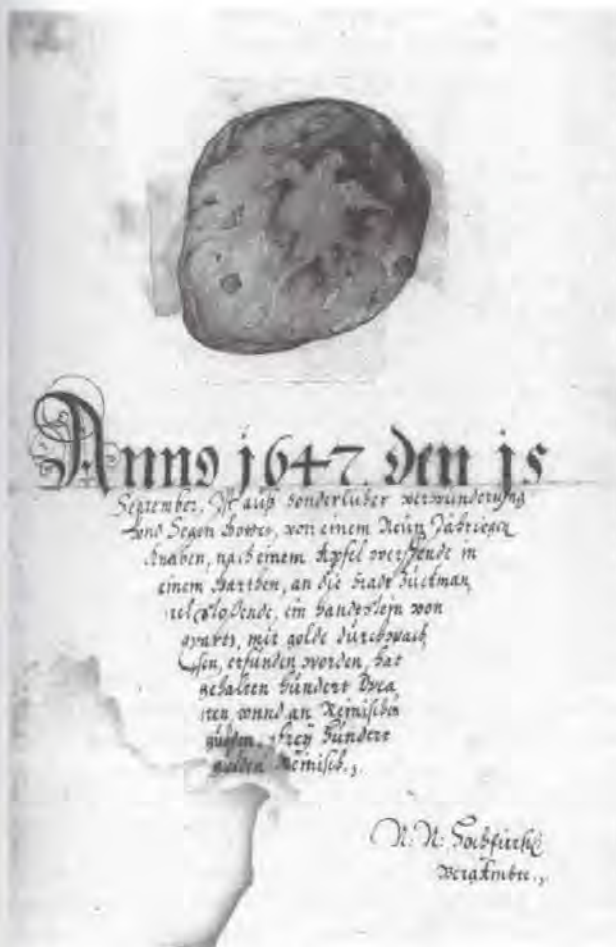 Anno 1647 den 15
September, Ist auß sonderlicher verwunderung
vnd Segen Gottes, von einem Neun Jährigen
Knaben, nach einem Apfel werffende in
einem Gartten, an die Stadt
ein handstein von
quartz, mit golde durchwach
sen, erfunden worden, hat
gehalten hundert Duca
ten vnnd an Remischen
gulden, drey hundert
gulden Remisch.,
N: N:
Bergkmbt.,